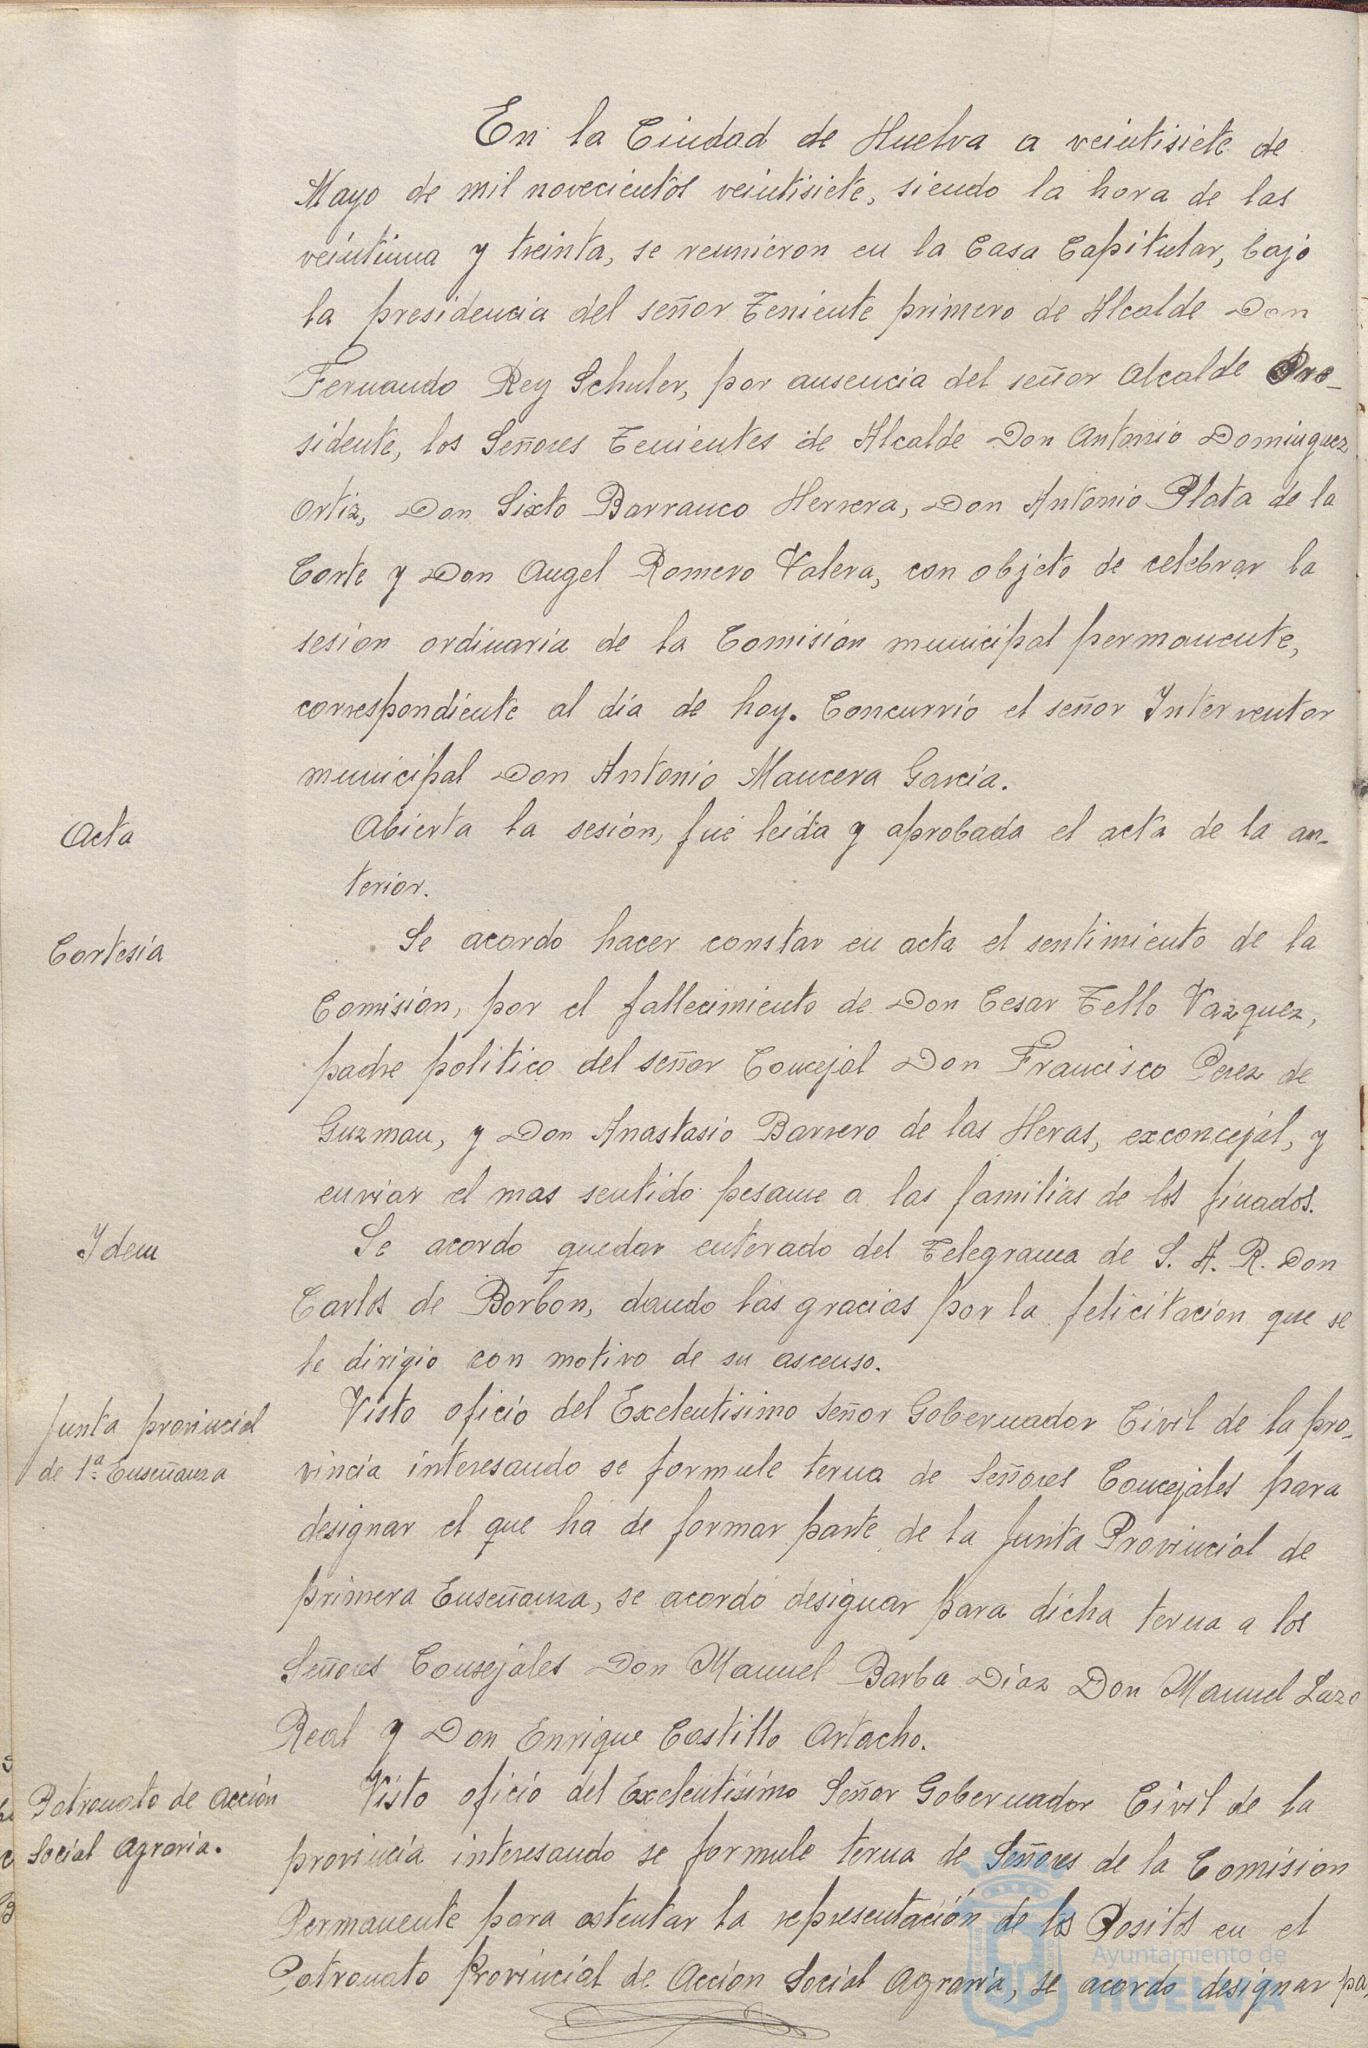 En la Ciudad de Huelva a veintisiete de
Mayo de mil novecientos veintisiete, siendo la hora de las
veintiuna y treinta, se reunieron en la Casa Capitular, bajo
la presidencia del señor Teniente primero de Alcalde Don
Fernando Rey Schuler, por ausencia del señor Alcalde Pre-
sidente, los Señores Tenientes de Alcalde Don Antonio Dominguez
Ortiz, Don Sixto Barranco Herrera, Don Antonio Plata de la
Corte y Don Angel Romero Valera, con objeto de celebrar la
sesion ordinaria de la Comisión municipal permanente,
correspondiente al día de hoy. Concurrió el señor Interventor
municipal Don Antonio Maucera García.
Acta
Abierta la sesión, fué leída y aprobada el acta de la an-
terior.
Cortesía
Se acordo hacer constar en acta el sentimiento de la
Comisión, por el fallecimiento de Don Cesar Tello Vazquez,
padre politico del señor Concejal Don Francisco Perez de
Guzman, y Don Anastasio Barrero de las Heras, exconcejál, y
enviar el mas sentido pesame a las familias de los finados.
Ydem
Se acordo quedar enterado del Telegrama de S. A. R. Don
Carlos de Borbon, dando las gracias por la felicitacion que se
le dirigió con motivo de su ascenso.
Junta provincial
de 1ª Enseñanza
Visto oficio del Excelentisimo Señor Gobernador Civil de la pro-
vincia interesando se formule terna de Señores Concejales para
designar el que há de formar parte de la Junta Provincial de
primera Enseñanza, se acordó designar para dicha terna a los
Señores Consejáles Don Manuel Barba Díaz Don Manuel Lazo
Real y Don Enrique Castillo Artacho.
Patronato de Acción
Social Agraria.
Visto oficio del Excelentísimo Señor Gobernador Civil de la
provincia interesando se formule terna de Señores de la Comision
Permanente para ostentar la representación de los Positos en el
Patronato Provinciál de Acción Social Agraria, se acordo designar pa-
Ayuntamiento de
HUELVA